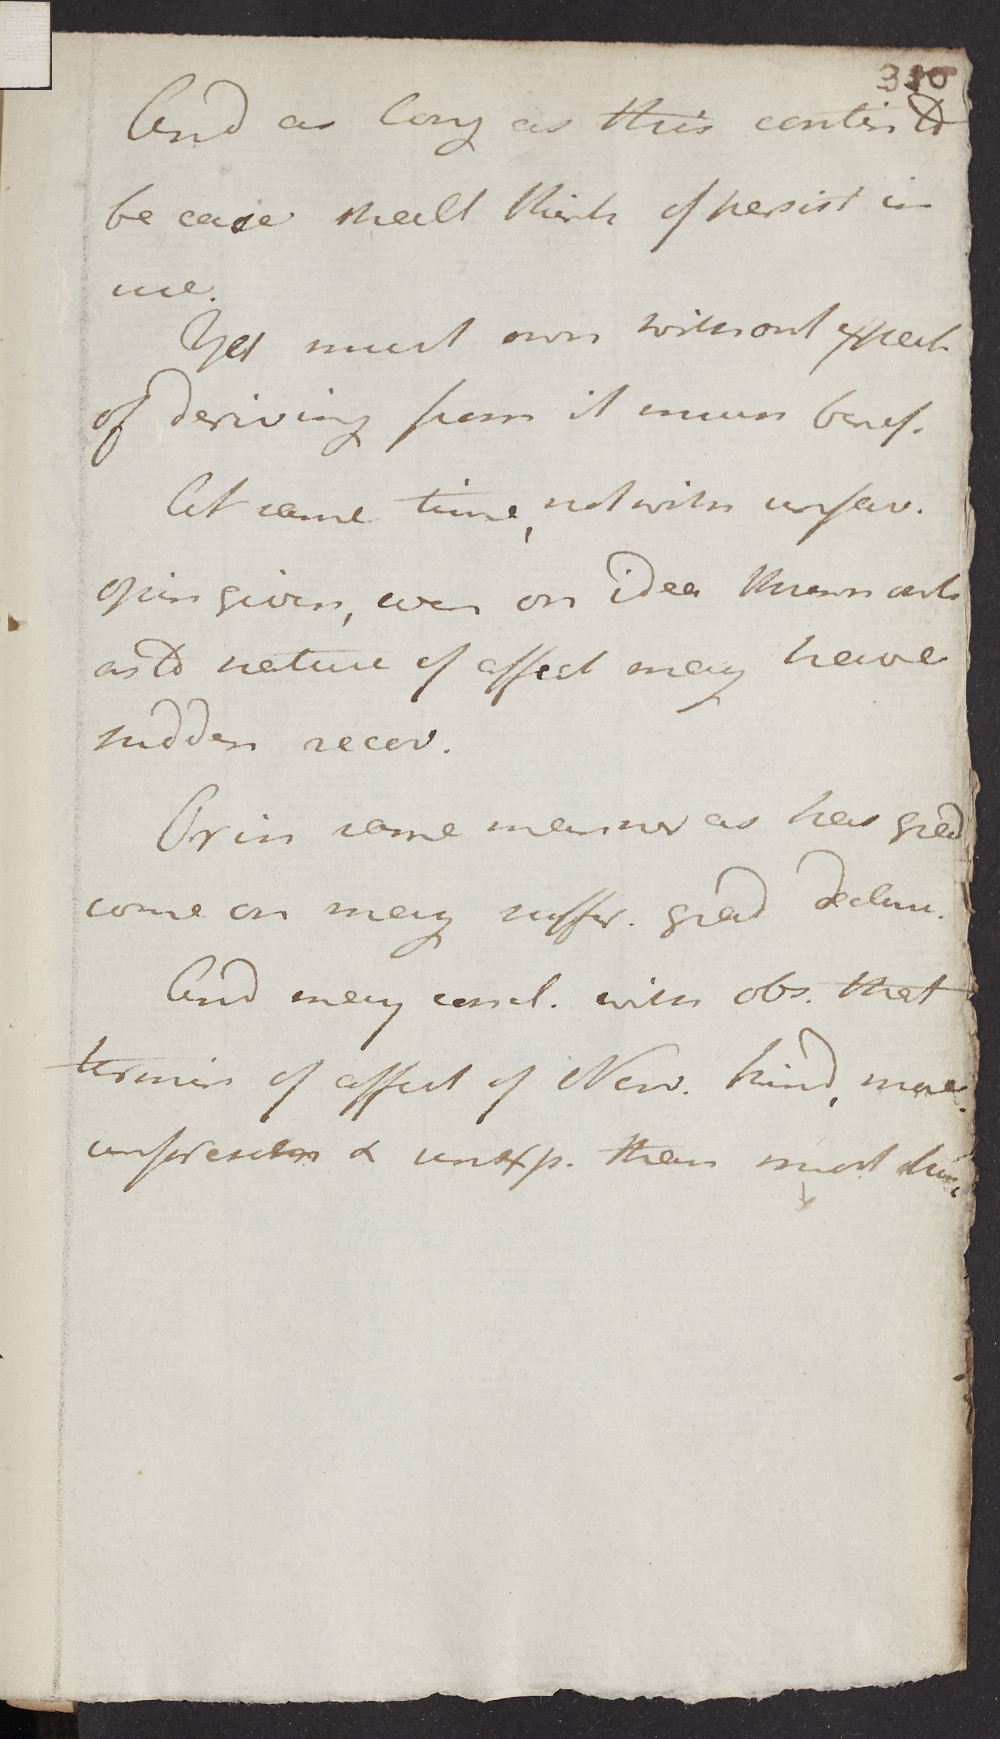 And as long as this contin to
be case shall think of persist in
use.
Yet must own without expect
of deriving from it much benef.
At same time, notwith unfav.
opin given, even on idea thrown out
as to nature of affect may have
sudden recov.
Or in same manner as has grad
come on may suffer. grad declin.
And may concl. with obs. that
termin of affect of Nerv. kind, more
unforeseen & unexp. than most